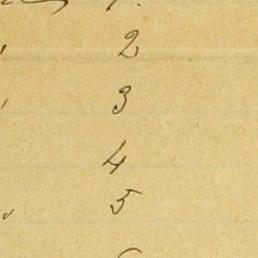 2
3
4
5